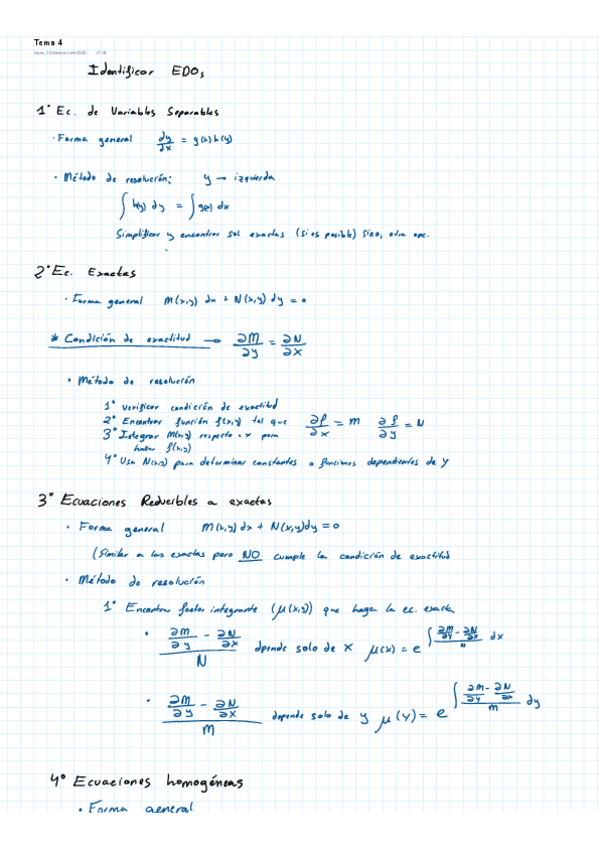 Tema 4
Identificar EDOs
1° Ec. de Variables Separables
· Forma general dy/dx = g(x) h(y)
· Método de resolución: y → izquierda
∫ h(y) dy = ∫ g(x) dx
Simplificar y encontrar sol exactas (si es posible) sino, otra opc.
2° Ec. Exactas
· Forma general M(x,y) dx + N(x,y) dy = 0
* Condición de exactitud → ∂M/∂y = ∂N/∂x
· Método de resolución
1° Verificar condición de exactitud
2° Encontrar función f(x,y) tal que ∂f/∂x = M ∂f/∂y = N
3° Integrar M(x,y) respecto a x para
hallar f(x,y)
4° Usa N(x,y) para determinar constantes o funciones dependientes de y
3° Ecuaciones Reducibles a exactas
· Forma general M(x,y) dx + N(x,y) dy = 0
(Similar a las exactas pero NO cumple la condición de exactitud
· Método de resolución
1° Encontrar factor integrante (μ(x,y)) que haga la ec. exacta
· (∂M/∂y - ∂N/∂x)/N dpende solo de x μ(x) = e^∫ (∂M/∂y - ∂N/∂x)/N dx
· (∂M/∂y - ∂N/∂x)/M depende solo de y μ(y) = e^∫ (∂M/∂y - ∂N/∂x)/M dy
4° Ecuaciones homogéneas
· Forma general